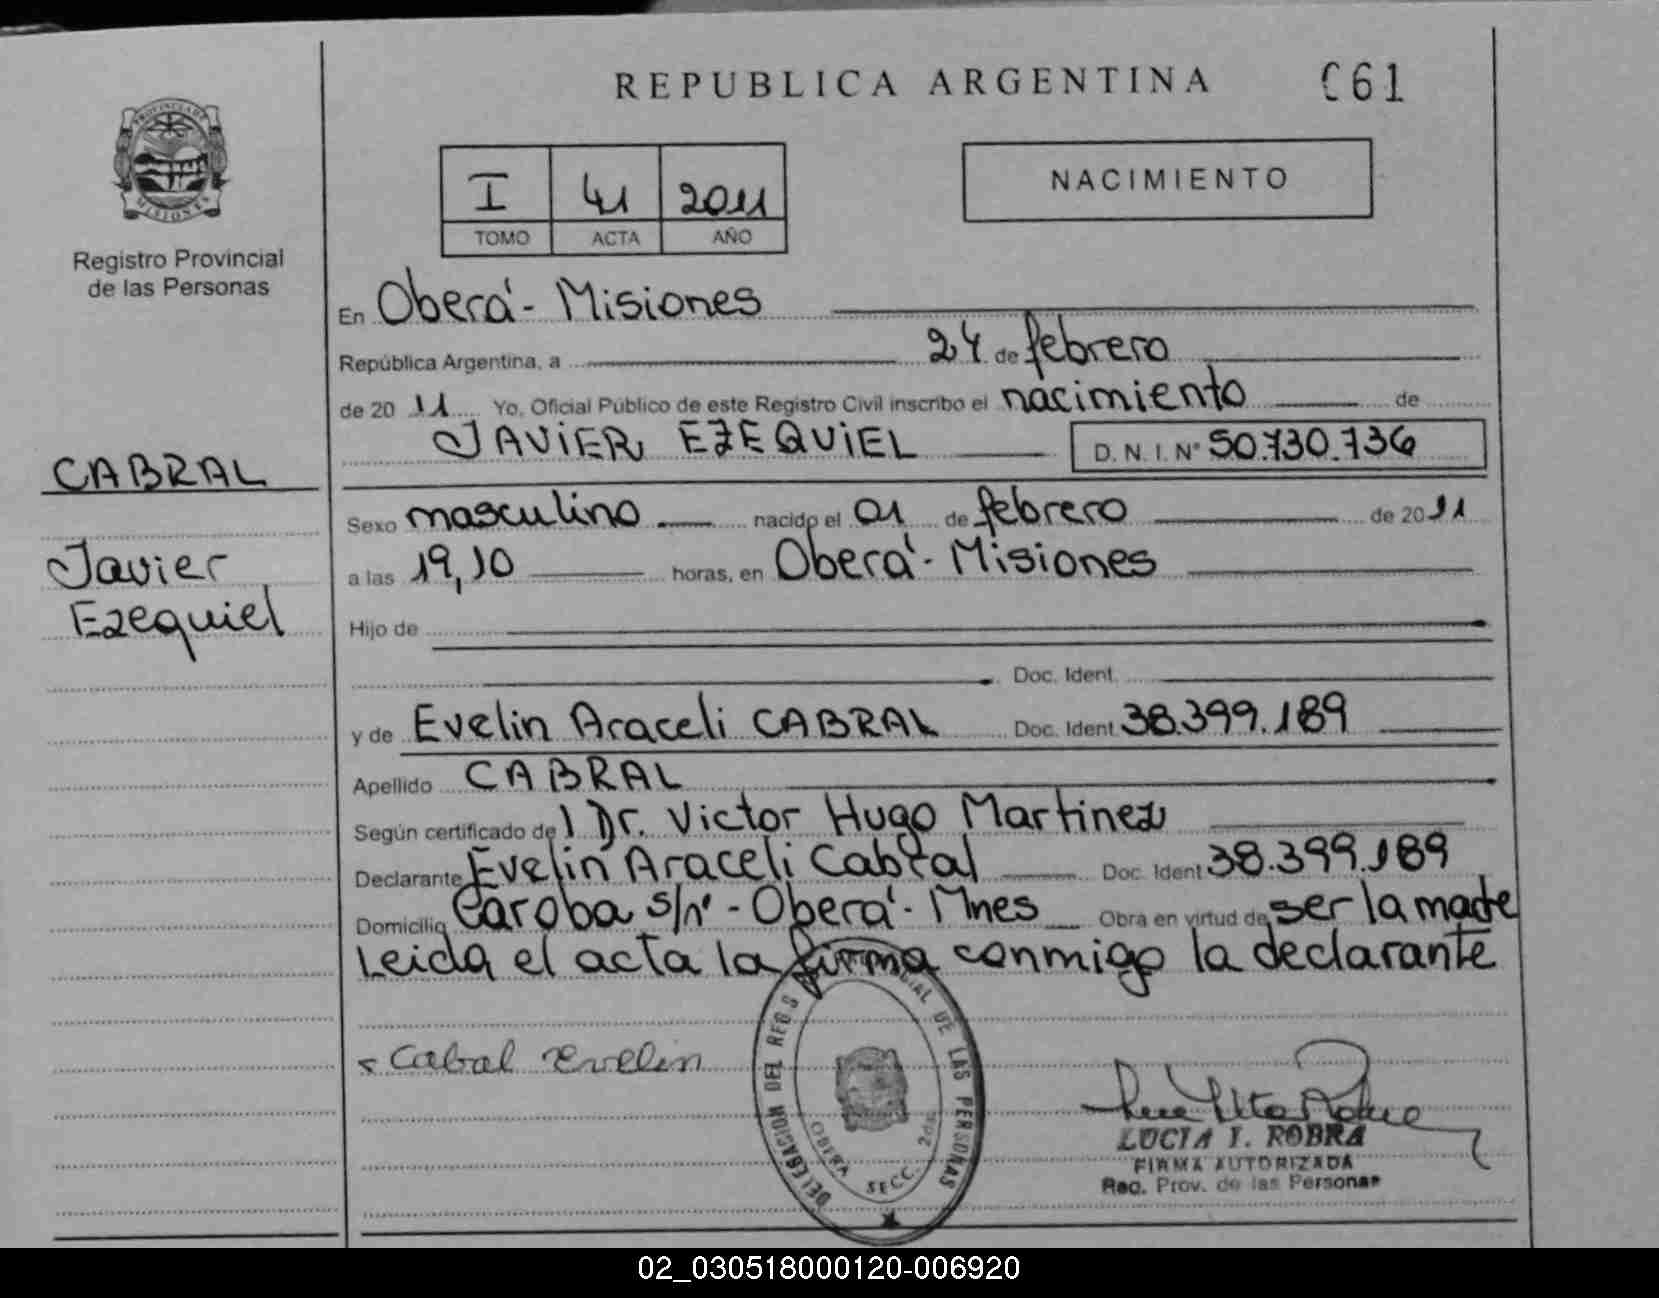 REPUBLICA ARGENTINA
C61
PROVINCIA DE
MISIONES
Registro Provincial
de las Personas
I 41 2011
TOMO ACTA AÑO
NACIMIENTO
CABRAL
Javier
Ezequiel
En Oberá - Misiones
República Argentina, a 24 de febrero
de 20 11 Yo, Oficial Público de este Registro Civil inscribo el nacimiento de
JAVIER EZEQUIEL D. N. I. N° 50.730.736
Sexo masculino nacido el 01 de febrero de 20 11
a las 19,10 horas, en Oberá - Misiones
Hijo de
Doc. Ident.
y de Evelin Araceli CABRAL Doc. Ident 38.399.189
Apellido CABRAL
Según certificado del Dr. Victor Hugo Martinez
Declarante Evelin Araceli Cabral Doc. Ident 38.399.189
Domicilio Caroba s/n° - Oberá - Mnes Obra en virtud de ser la madre
Leida el acta la firma conmigo la declarante
Cabal Evelin
DELEGACION DEL REGIS CIAL DE LAS PERSONAS
OBERA SECC. 2da
LUCIA I. ROBRA
FIRMA AUTORIZADA
Reg. Prov. de las Personas
02_030518000120-006920